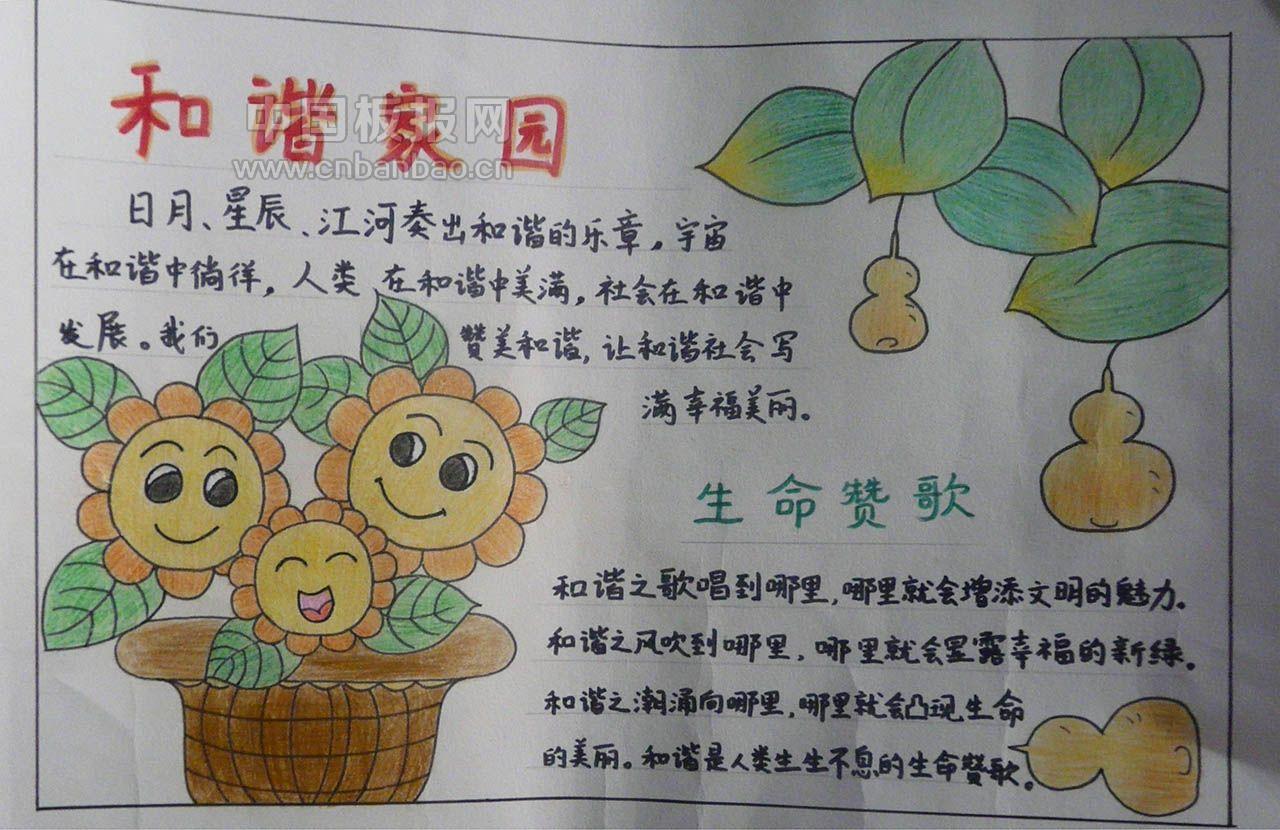 和谐家园
中国板报网
www.cnbanbao.cn
日月、星辰、江河奏出和谐的乐章，宇宙
在和谐中徜徉，人类 在和谐中美满，社会在和谐中
发展。我们 赞美和谐，让和谐社会写
满幸福美丽。
生命赞歌
和谐之歌唱到哪里，哪里就会增添文明的魅力。
和谐之风吹到哪里，哪里就会显露幸福的新绿。
和谐之潮涌向哪里，哪里就会凸现生命
的美丽。和谐是人类生生不息的生命赞歌。